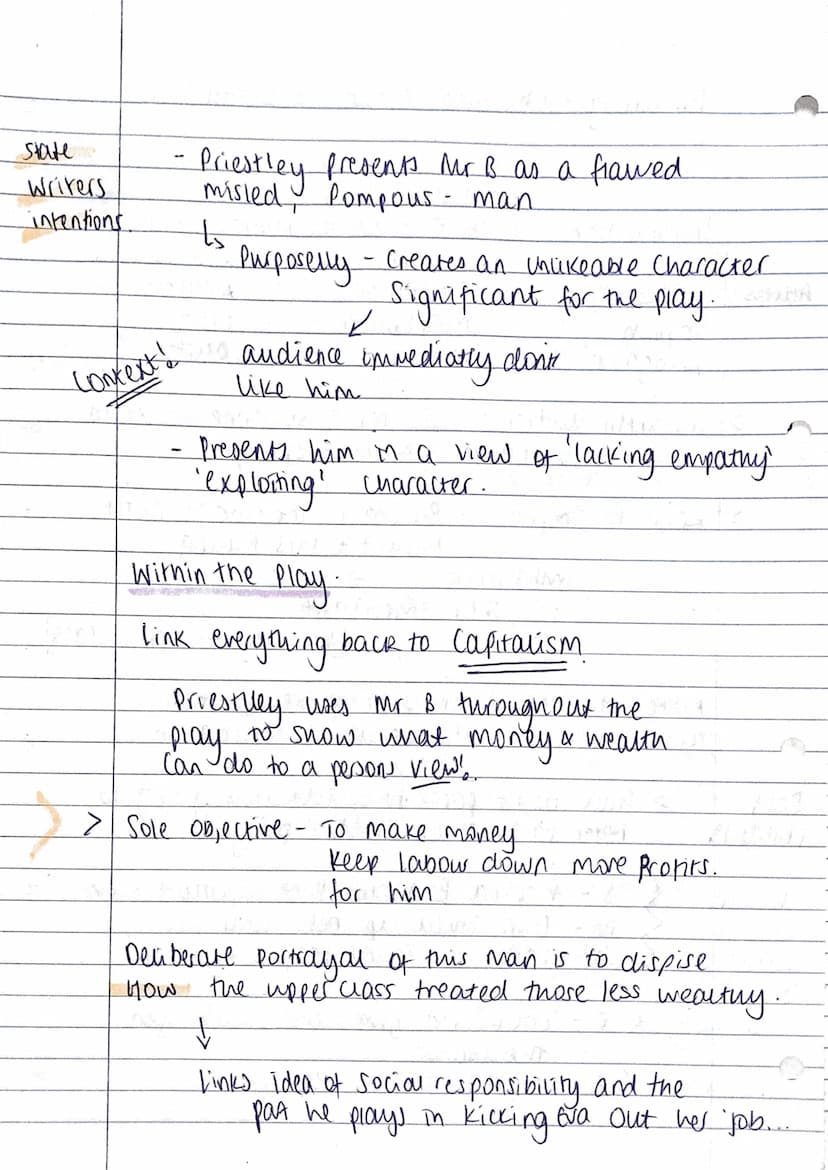 state
writers
intentions.
- Priestley presents Mr B as a flawed
misled, Pompous - man
↳ Purposely - Creates an unlikeable character
Significant for the play.
↙
Context!
audience immediatly dont
like him
- Presents him in a view of 'lacking empathy'
'exploiting' character.
Within the Play.
Link everything back to Capitalism.
Priestley uses Mr B throughout the
play to show what money & wealth
can do to a persons view!.
> Sole objective - To make money
keep labour down more profits.
for him
Deliberate portrayal of this man is to dispise
How the upper class treated those less wealthy.
↓
Links idea of social responsibility and the
part he plays in kicking Eva out her job...